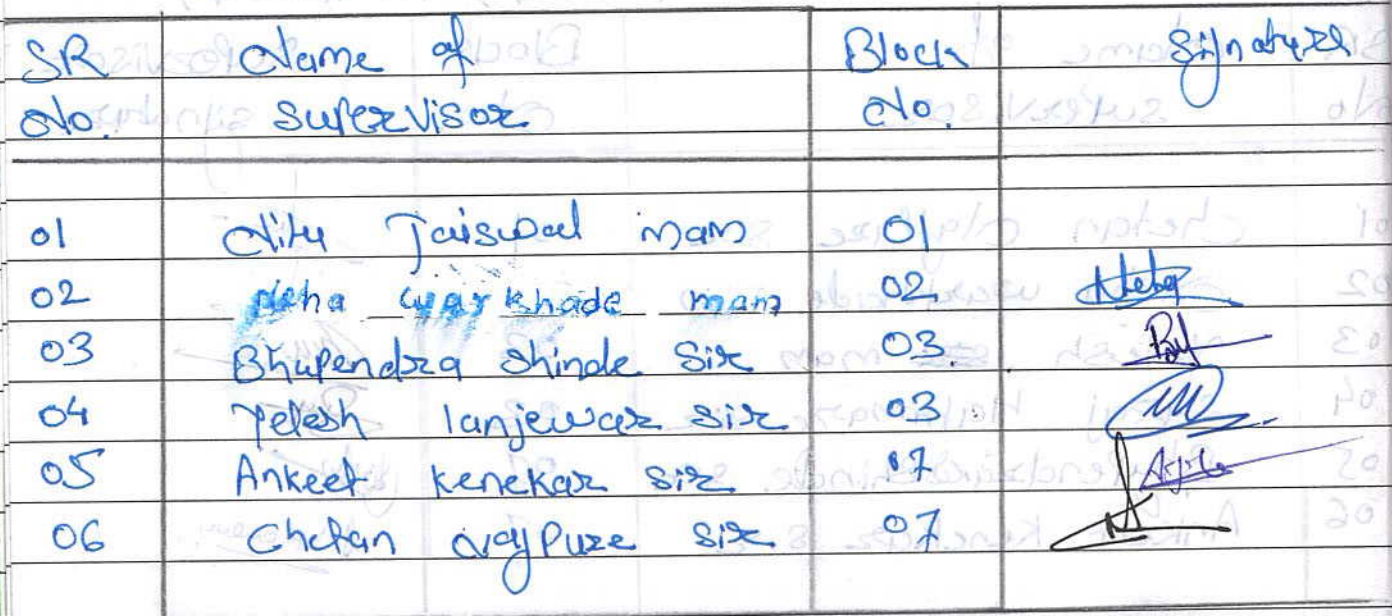 SR Name of Block Signature
No. Supervisor No.
01 Nitu Jaiswal mam 01
02 Neha warkhade mam 02 Neha
03 Bhupendra Shinde Sir 03.
04 Yelesh lanjewar Sir 03
05 Ankeet Kenekar Sir 07
06 Chetan Nagpure Sir 07